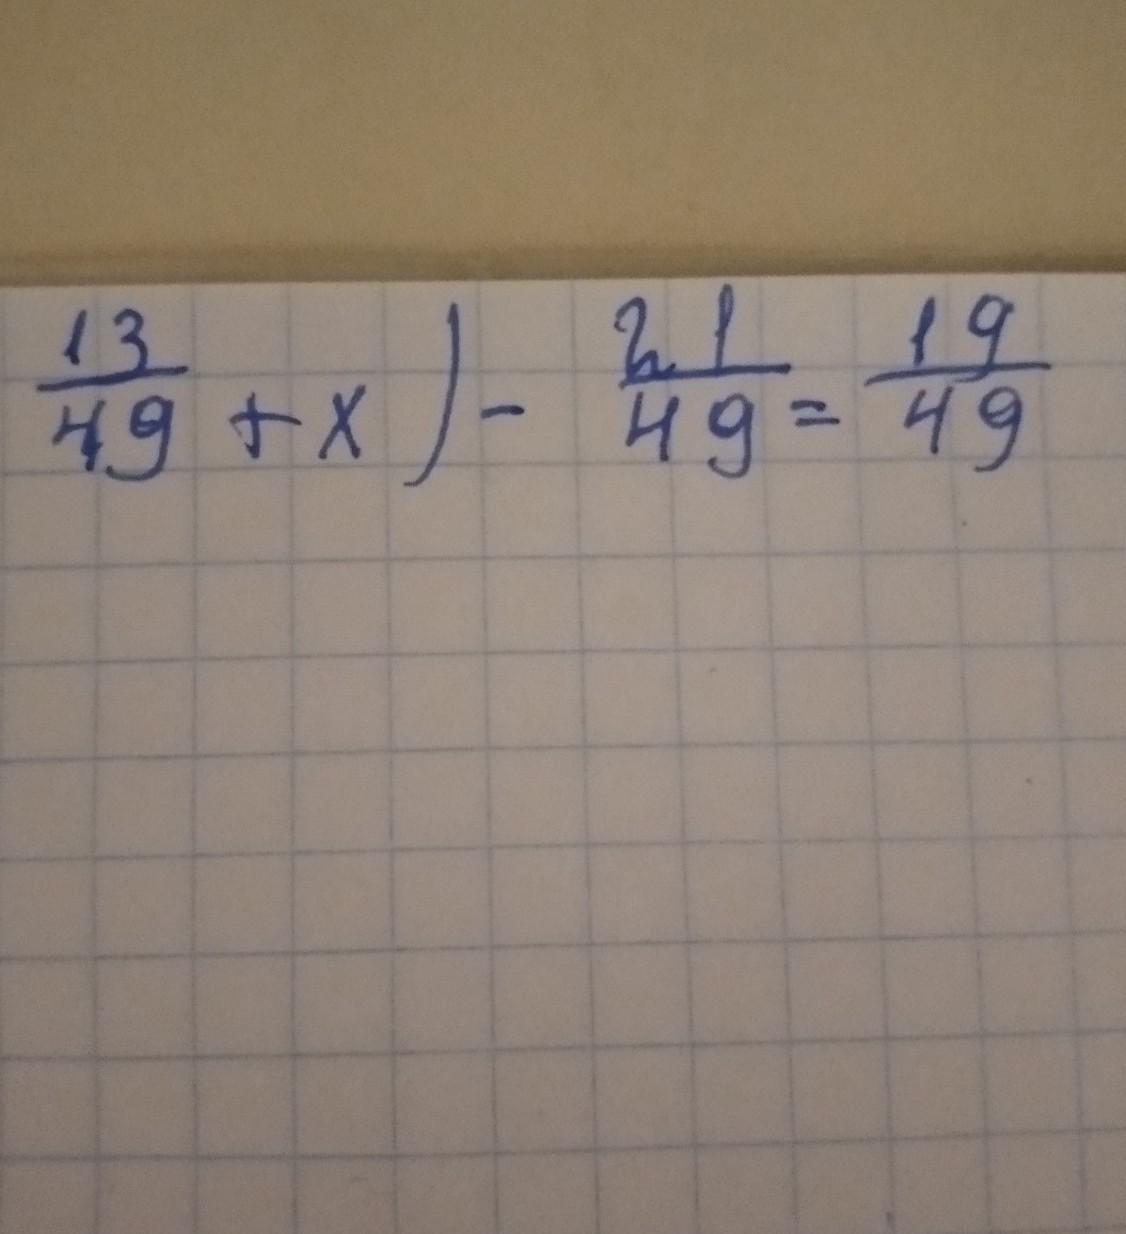 13/49 + x) - 21/49 = 19/49